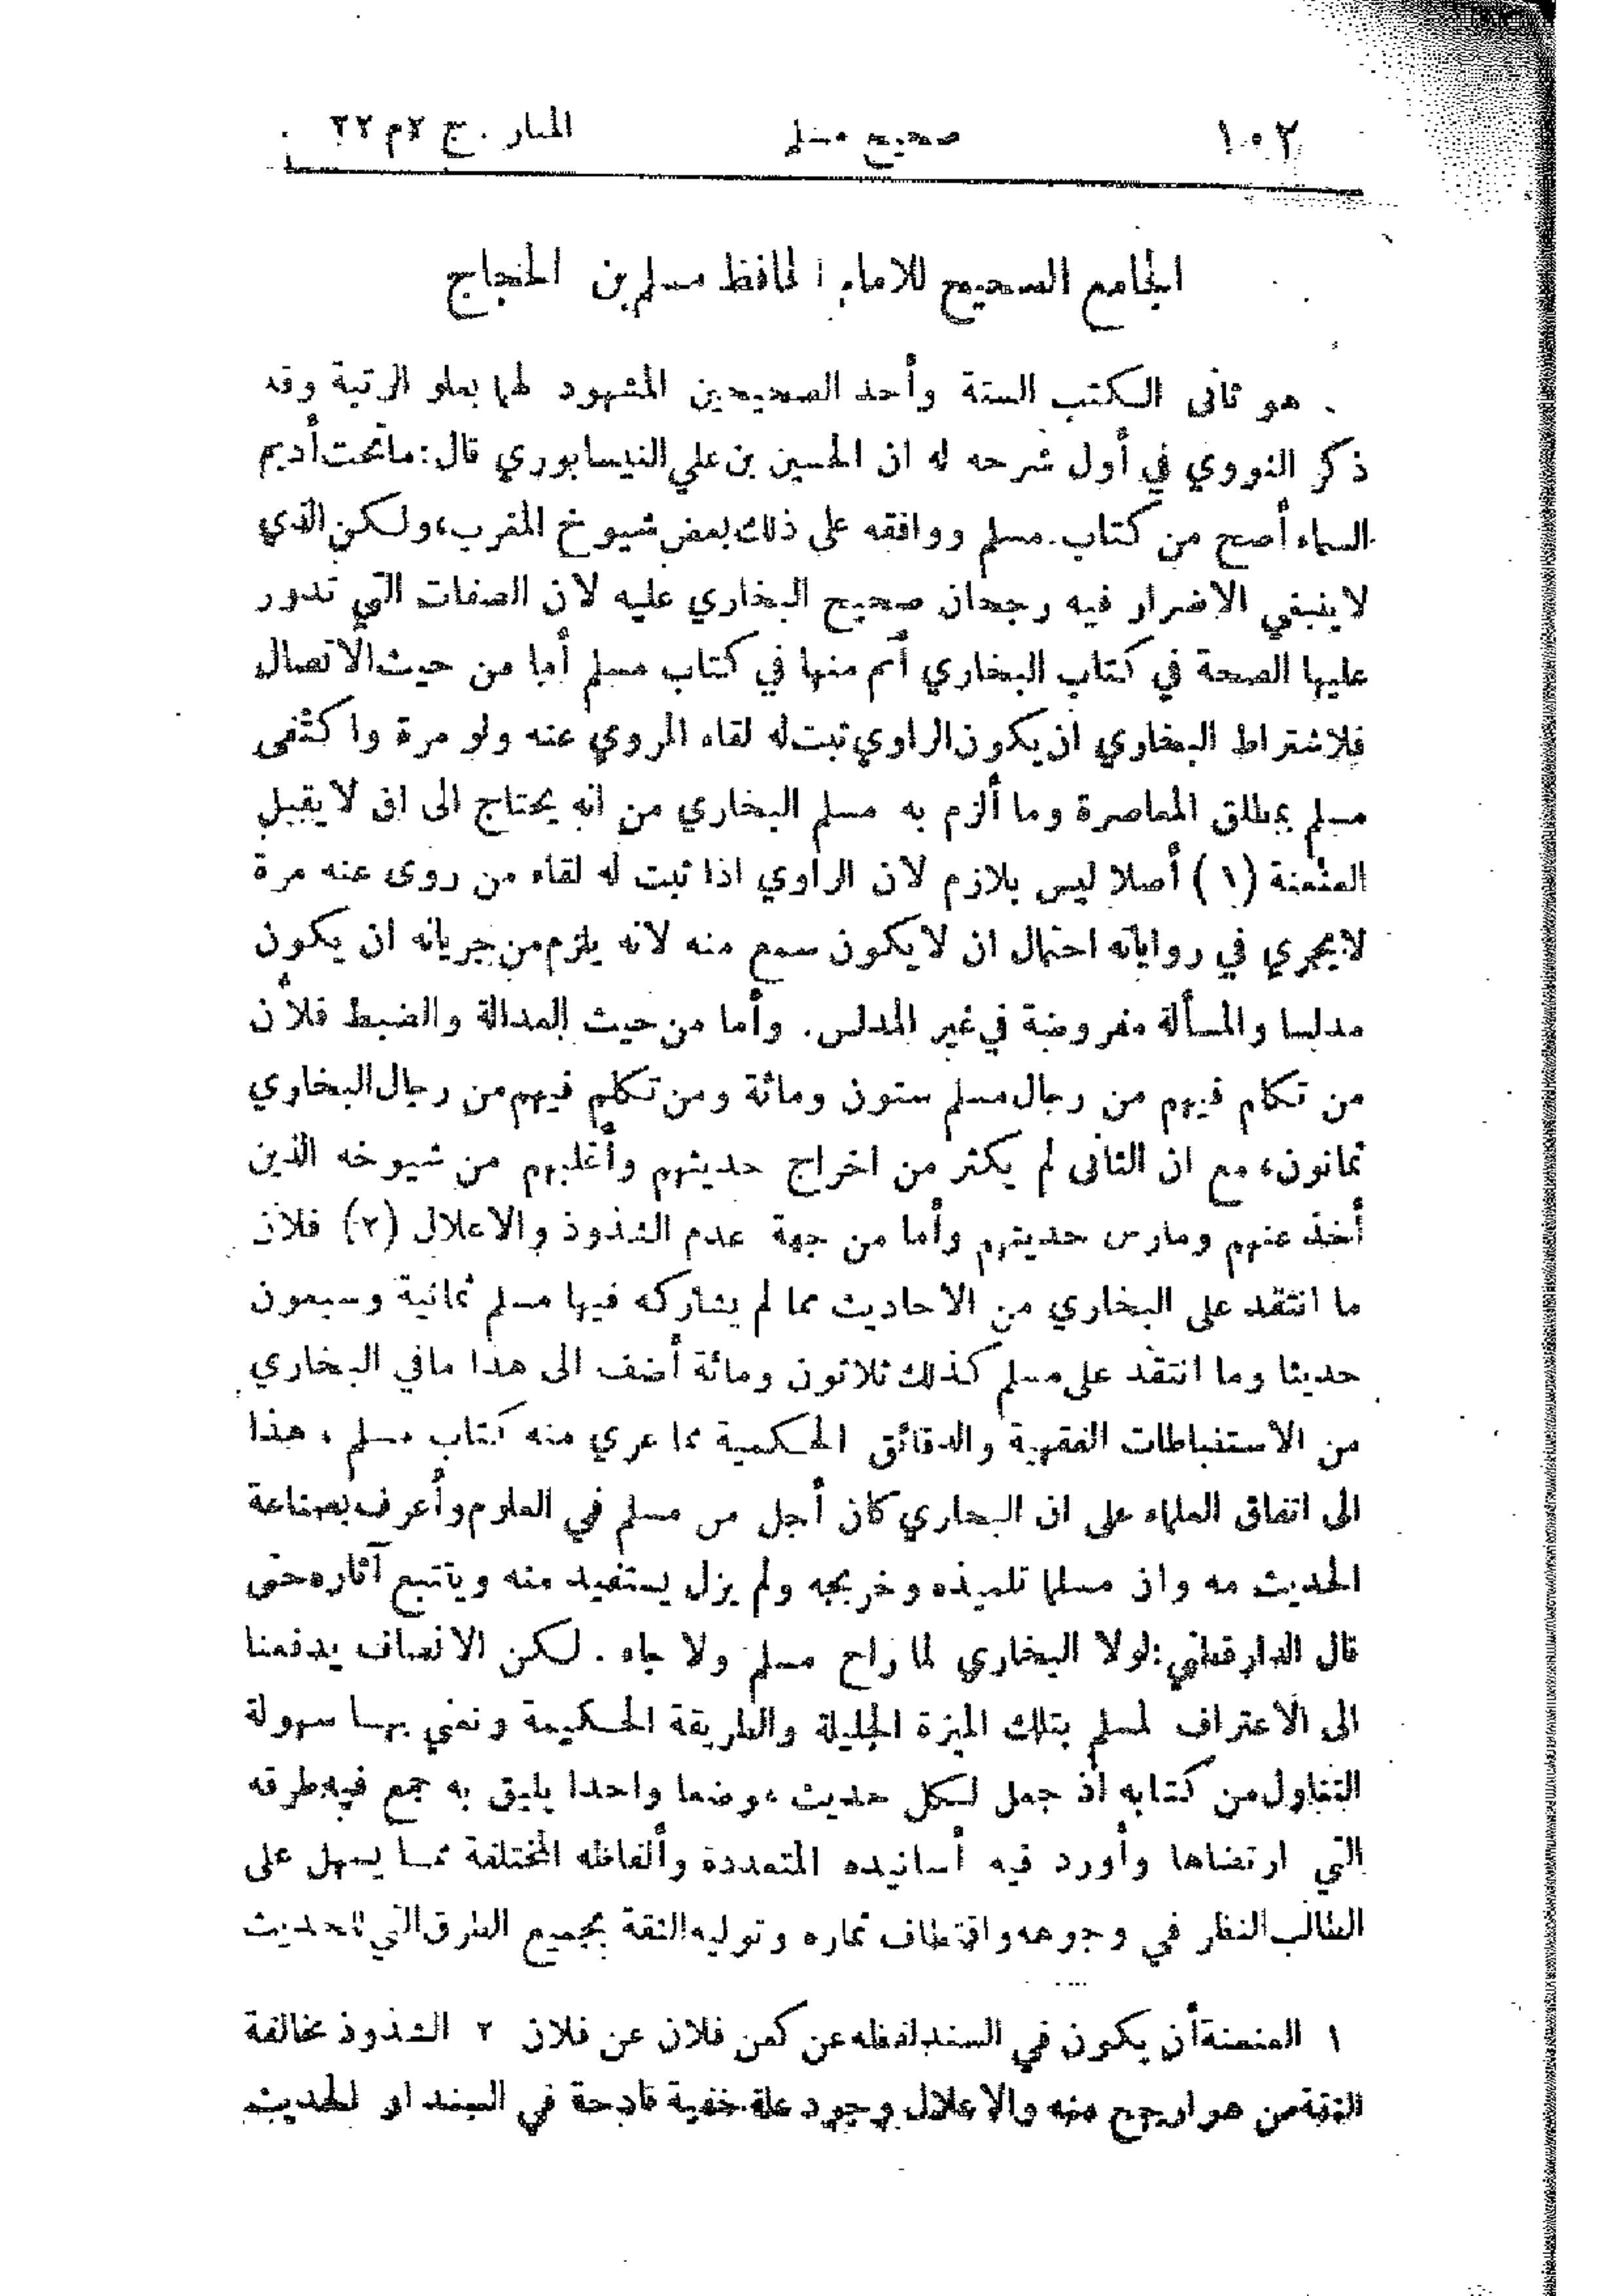 ١٠٢ صحيح مسلم المنار . ج ٢ م ٢٢
الجامع الصحيح للامام الحافظ مسلم بن الحجاج
هو ثانى الكتب الستة وأحد الصحيحين المشهود لهما بعلو الرتبة وقد
ذكر النووي في أول شرحه له ان الحسين بن علي النيسابوري قال: ما تحت أديم
السماء أصح من كتاب مسلم ووافقه على ذلك بعض شيوخ المغرب، ولكن الذي
لا ينبغي الاضرار فيه رجحان صحيح البخاري عليه لان الصفات التي تدور
عليها الصحة في كتاب البخاري أتم منها في كتاب مسلم أما من حيث الاتصال
فلاشتراط البخاري ان يكون الراوي ثبت له لقاء المروي عنه ولو مرة واكتفى
مسلم بمطلق المعاصرة وما ألزم به مسلم البخاري من انه يحتاج الى ان لا يقبل
العنعنة (١) أصلا ليس بلازم لان الراوي اذا ثبت له لقاء من روى عنه مرة
لا يجري في رواياته احتمال ان لا يكون سمع منه لانه يلزم من جريانه ان يكون
مدلسا والمسألة مفروضة في غير المدلس. وأما من حيث العدالة والضبط فلأن
من تكلم فيهم من رجال مسلم ستون ومائة ومن تكلم فيهم من رجال البخاري
ثمانون، مع ان الثانى لم يكثر من اخراج حديثهم وأغلبهم من شيوخه الذين
أخذ عنهم ومارس حديثهم وأما من جهة عدم الشذوذ والاعلال (٢) فلان
ما انتقد على البخاري من الاحاديث مما لم يشاركه فيها مسلم ثمانية وسبعون
حديثا وما انتقد على مسلم كذلك ثلاثون ومائة أضف الى هذا ما في البخاري
من الاستنباطات الفقهية والدقائق الحكمية مما عري منه كتاب مسلم ، هذا
الى اتفاق العلماء على ان البخاري كان أجل من مسلم في العلوم وأعرف بصناعة
الحديث منه وان مسلما تلميذه وخريجه ولم يزل يستفيد منه ويتتبع آثاره حتى
قال الدارقطني: لولا البخاري لما راح مسلم ولا جاء . لكن الانصاف يدفعنا
الى الاعتراف لمسلم بتلك الميزة الجليلة والطريقة الحكيمة ونعني بها سهولة
التناول من كتابه اذ جعل لكل حديث موضعا واحدا يليق به جمع فيه طرقه
التي ارتضاها وأورد فيه أسانيده المتعددة وألفاظه المختلفة مما يسهل على
الطالب النظر في وجوهه واقتطاف ثماره وتوليه الثقة بجميع الطرق التي للحديث
١ العنعنة أن يكون في السند لفظه عن كعن فلان عن فلان ٢ الشذوذ مخالفة
الثقة من هو ارجح منه والاعلال وجود علة خفية قادحة في السند او الحديث